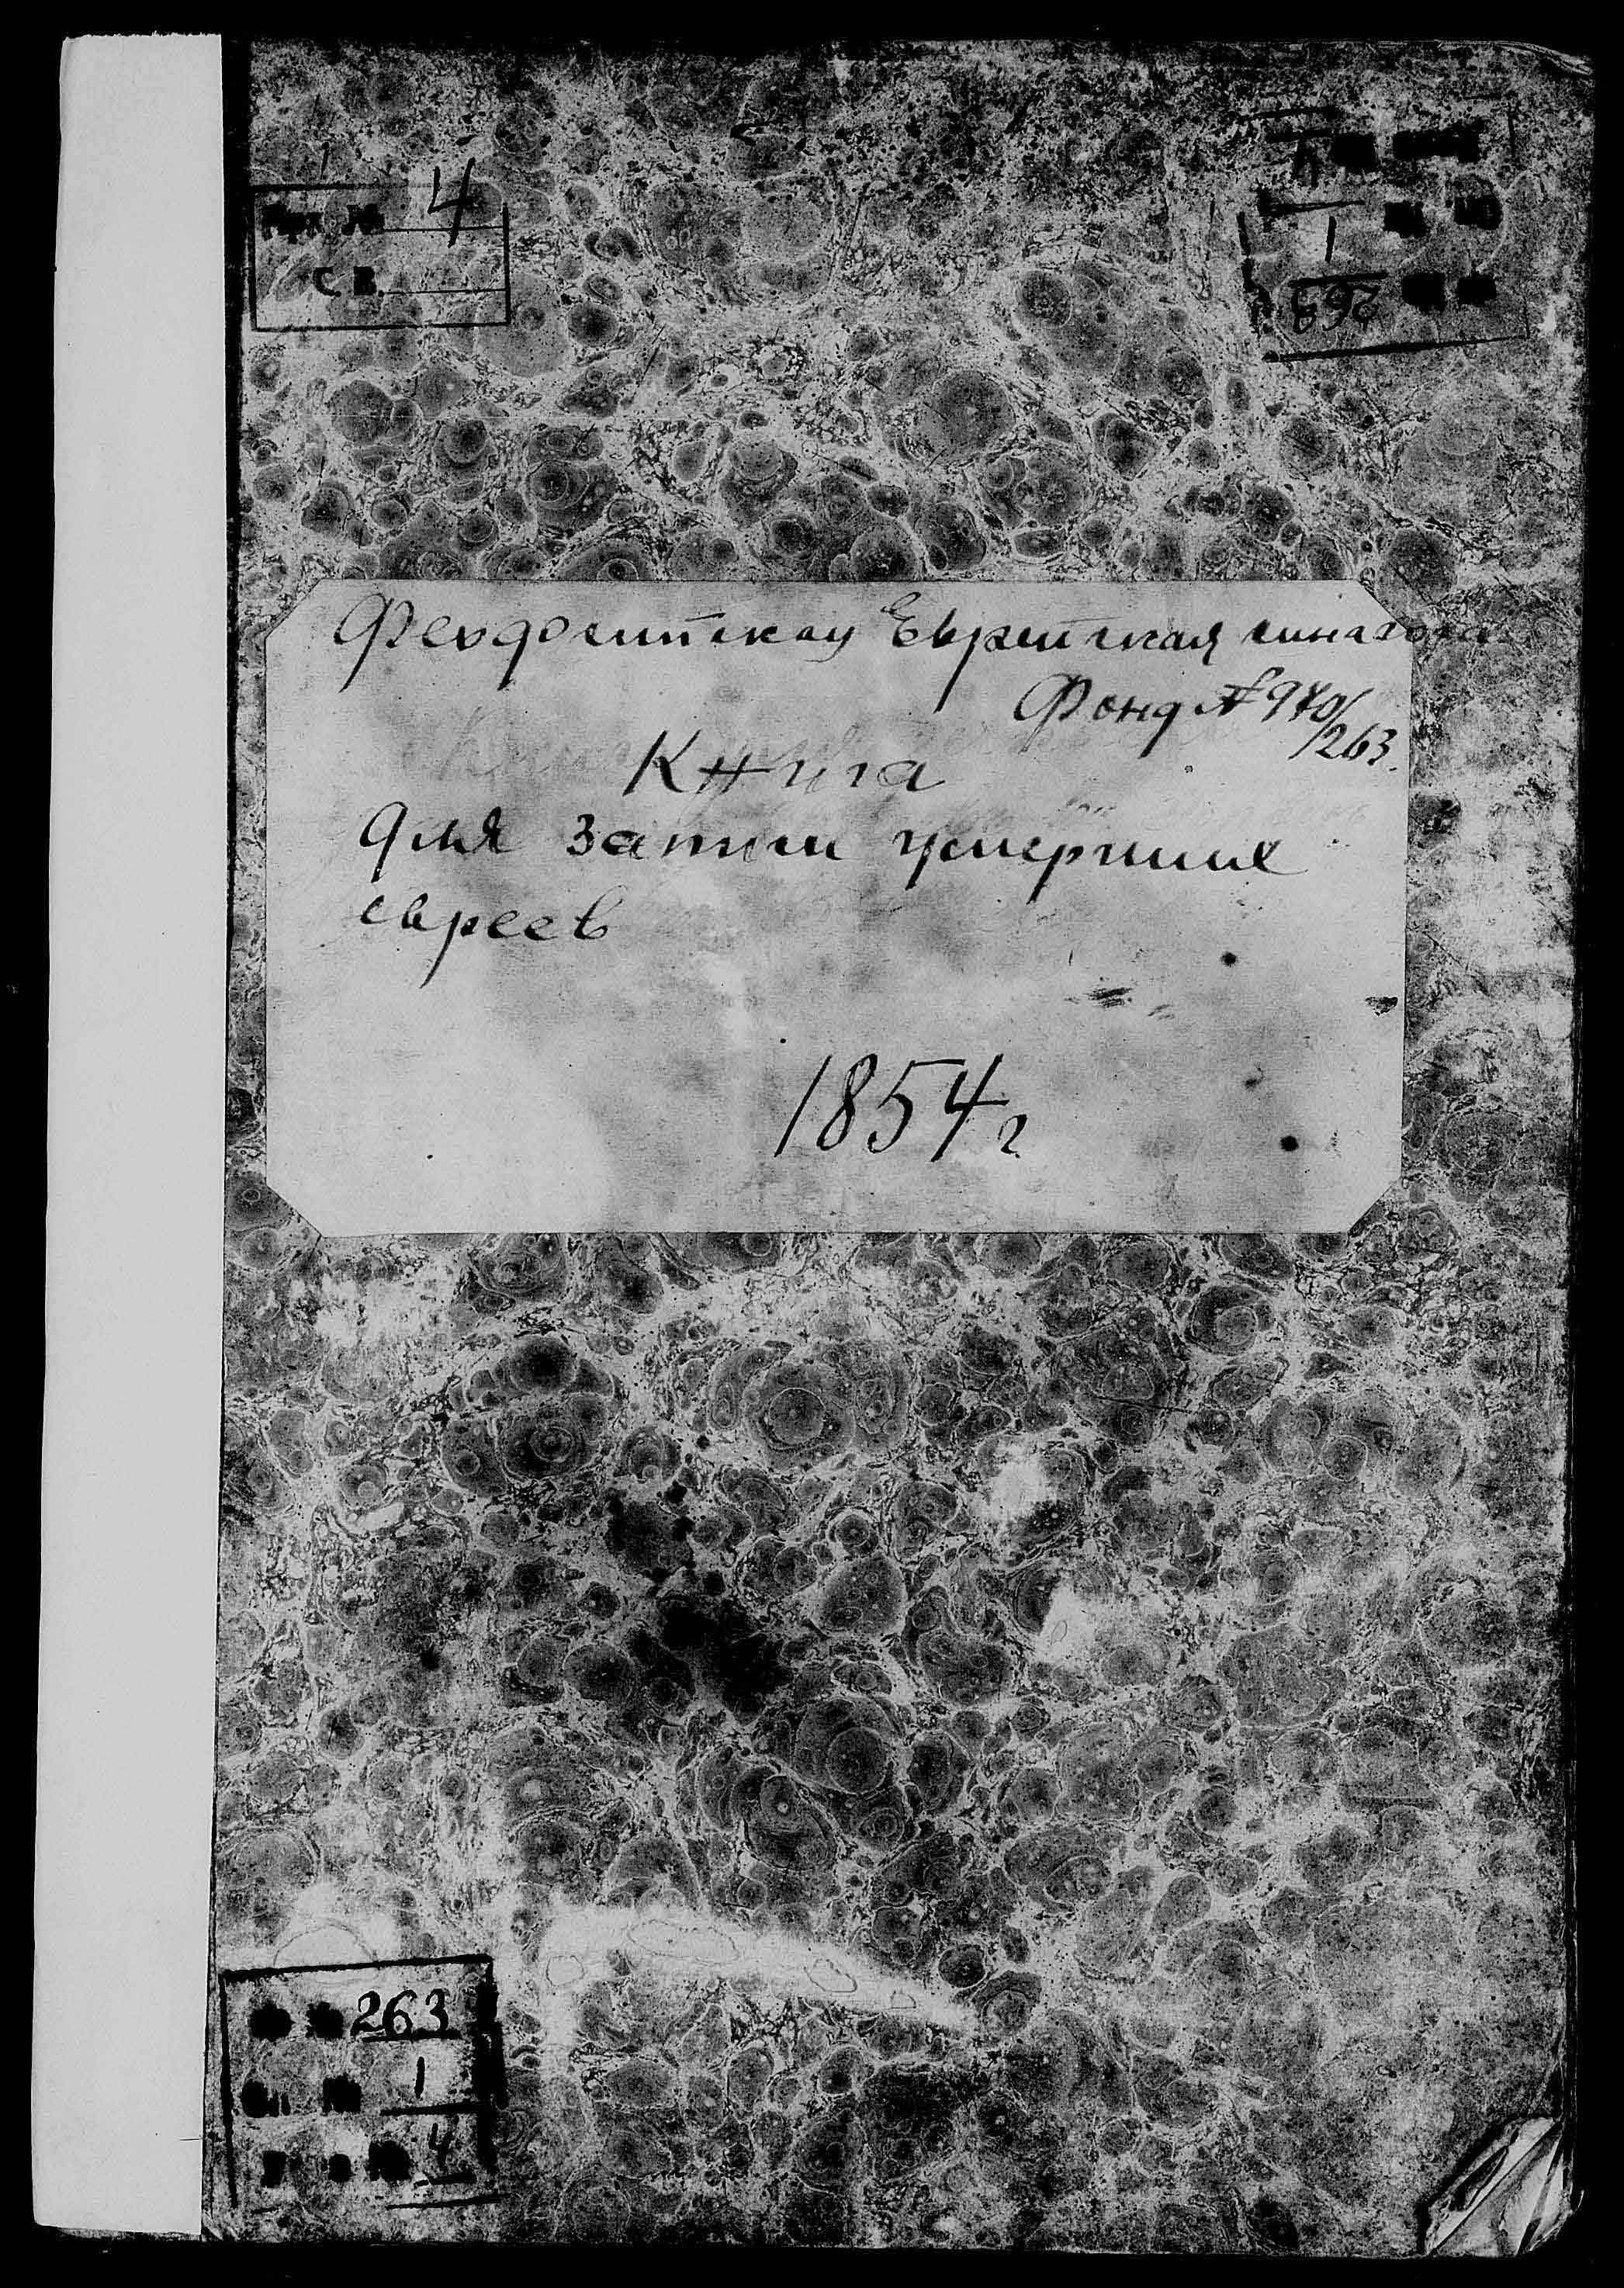 Арх. № 4
С. В.
4
1
263
Феодосийская Еврейская синагога
Фонд № 940/263.
Книга
для записи умерших
евреев
1854 г
263
Оп. № 1
№ 4